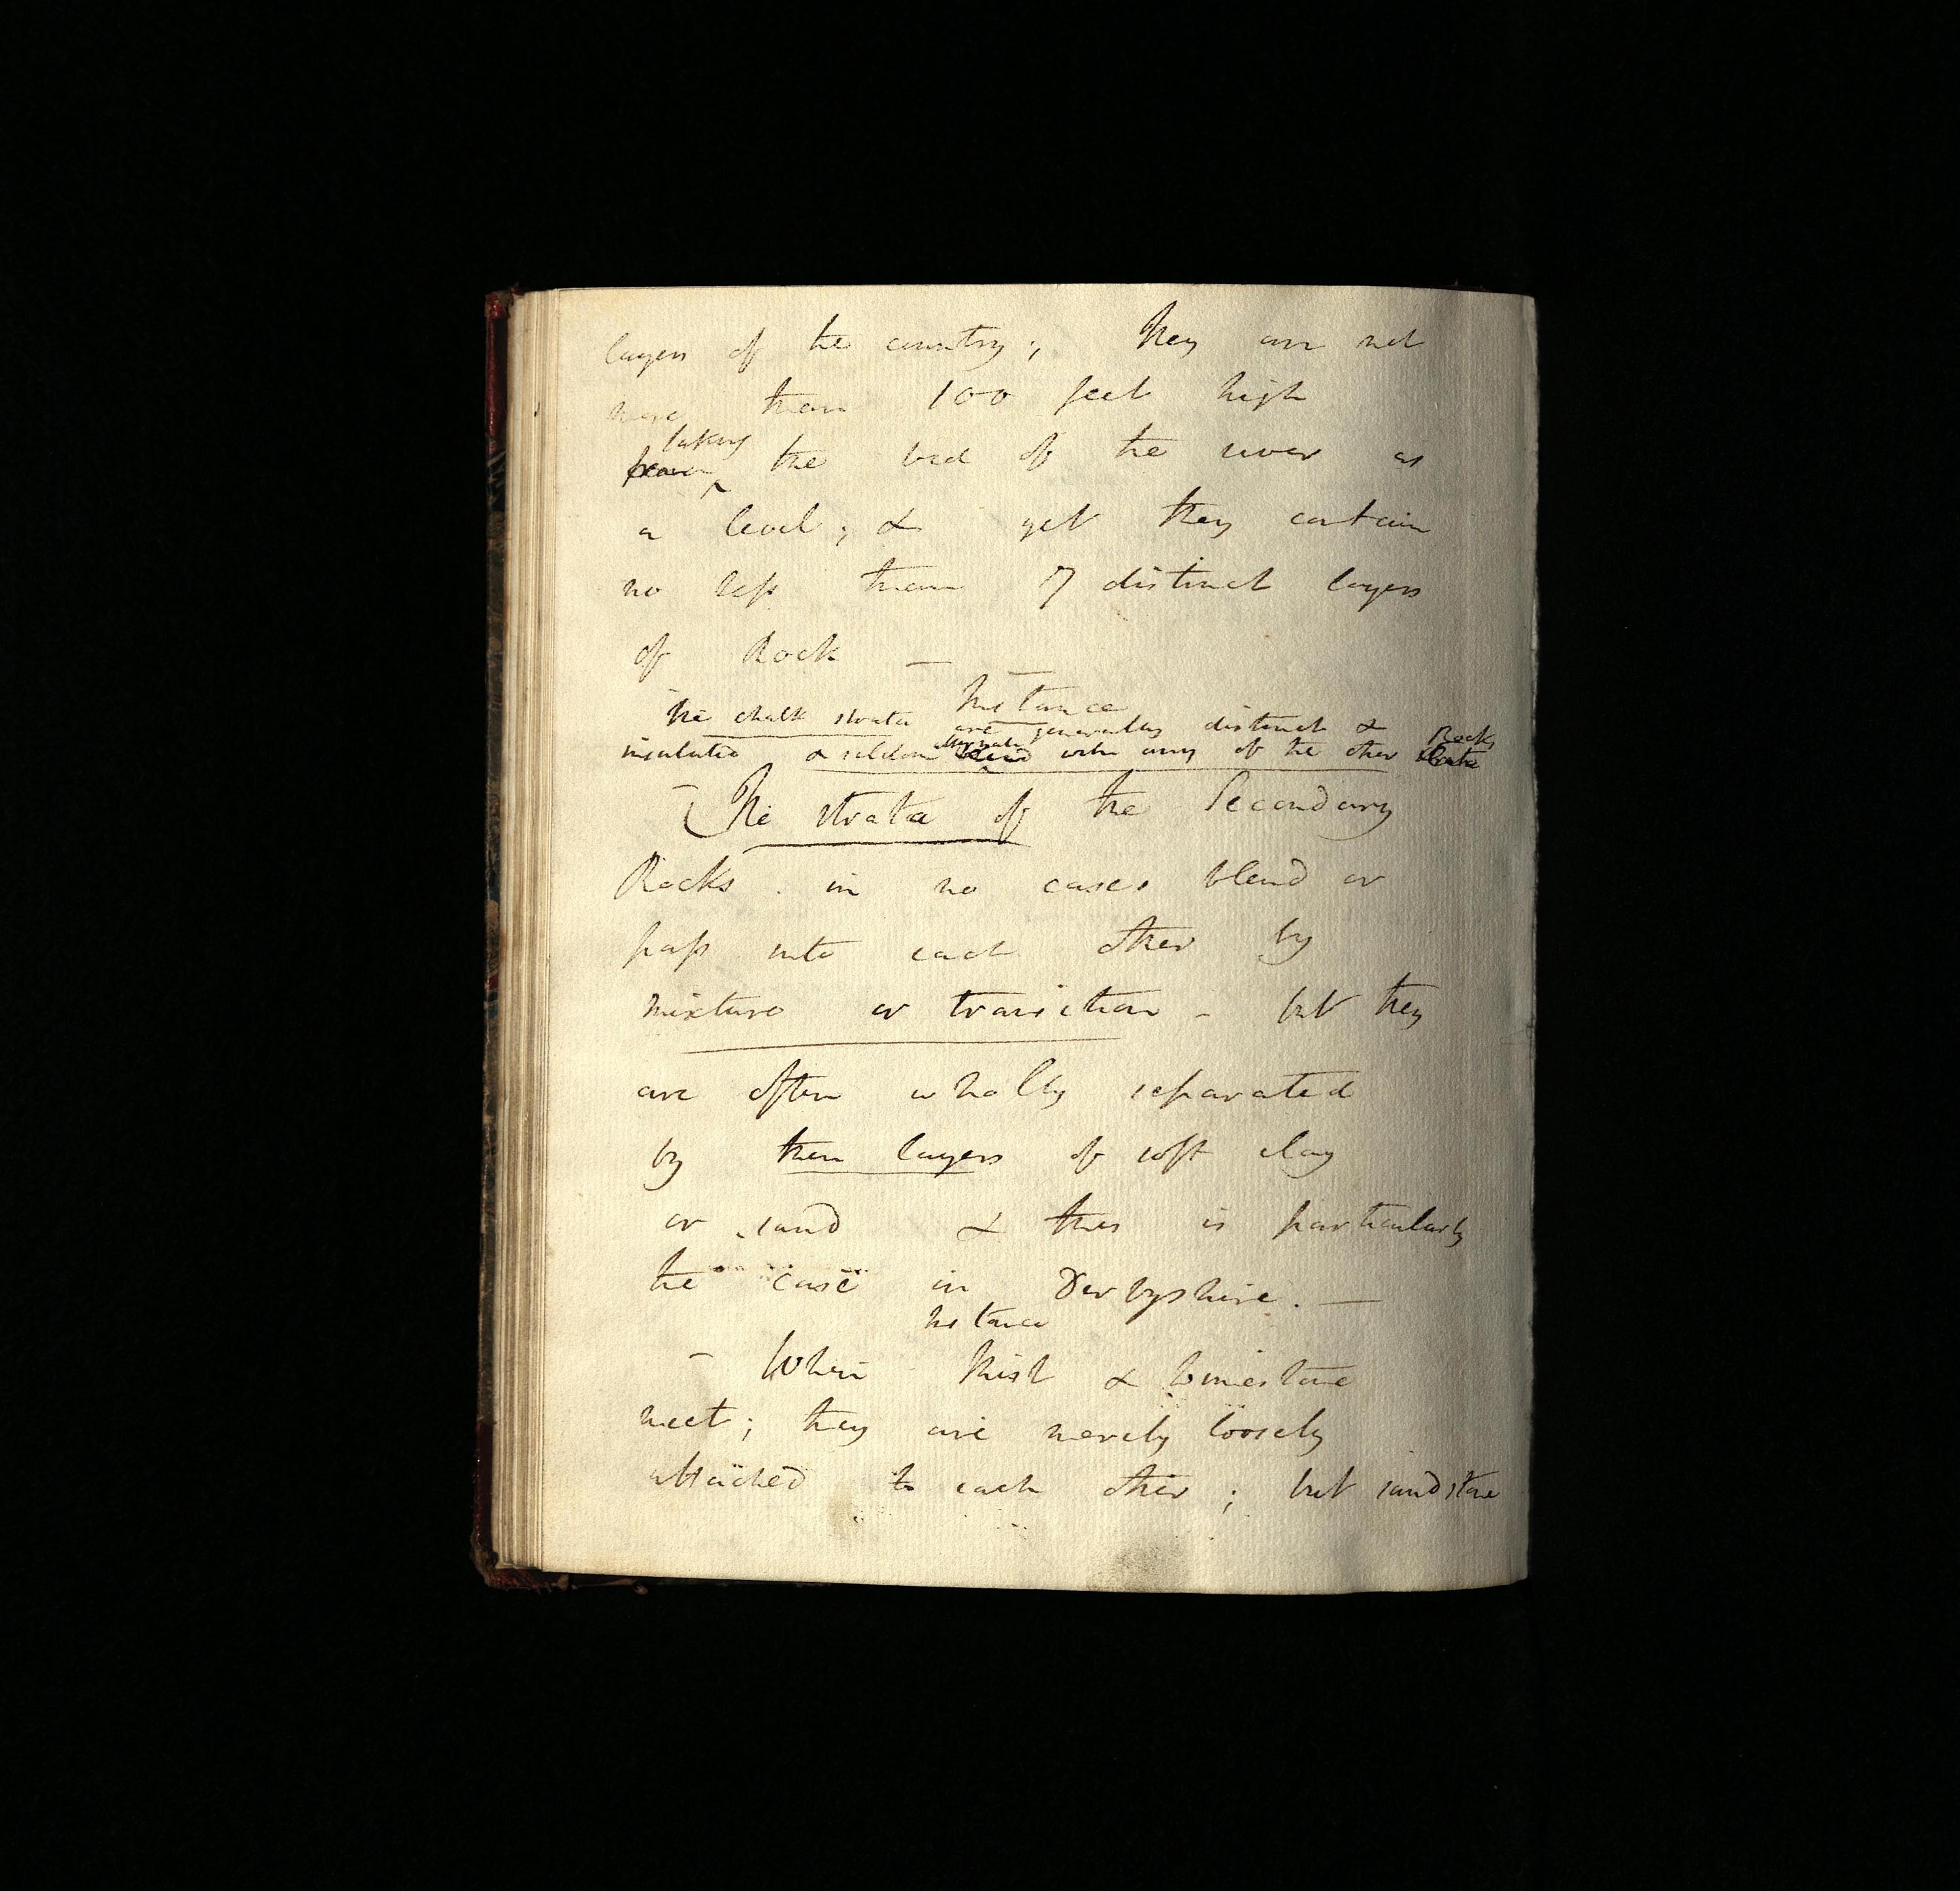 layers of the country; They are not
more than 100 feet high
taking
from the bed of the river as
a level; & yet they contain
no less than 7 distinct layers
of Rock —
Instance
The chalk strata are generally distinct &
insulated & seldom alternate blend with any of the other Rocks
— The strata of the Secondary
Rocks in no cases blend or
pass into each other by
mixture or transition – but they
are often wholly separated
by thin layers of soft clay
or sand & this is particularly
the case in Derbyshire. —
Instance
– When Shist & limestone
meet; they are merely loosely
attached to each other; but sandstone